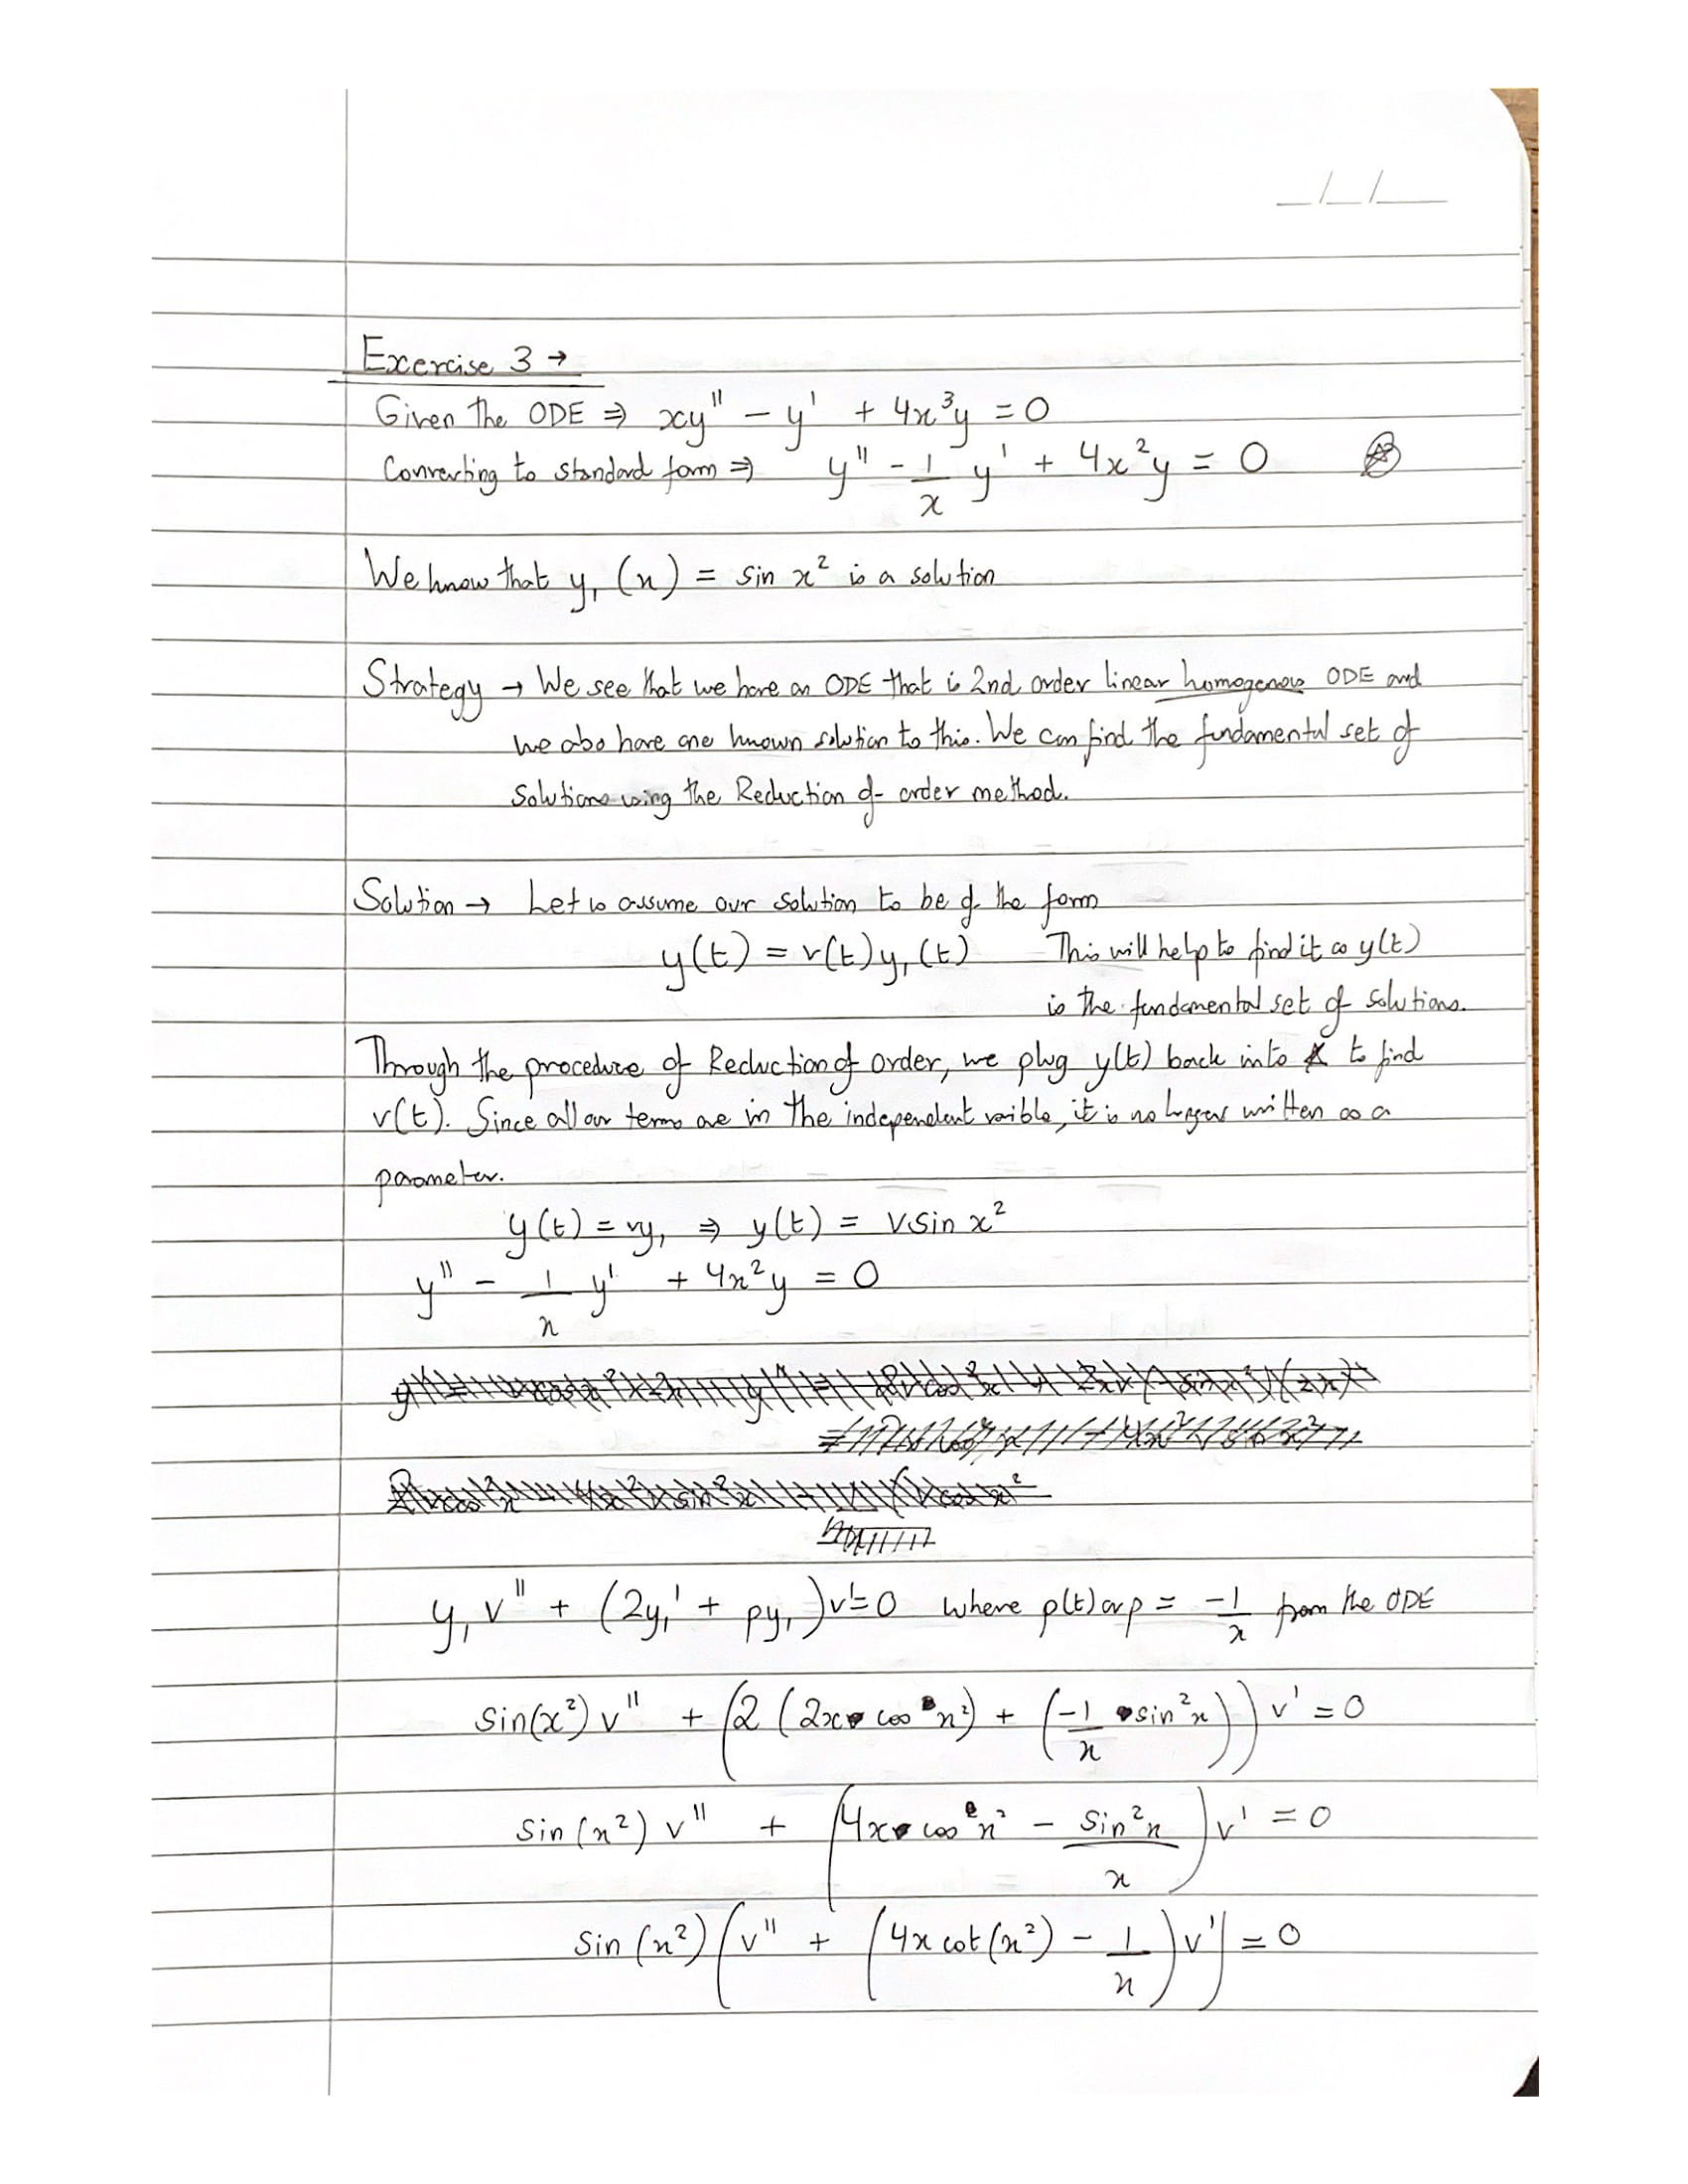 _/_/__
Exercise 3 →
Given the ODE ⇒ xy'' - y' + 4x³y = 0
Converting to standard form ⇒ y'' - 1/x y' + 4x²y = 0
We know that y₁(x) = sin x² is a solution
Strategy → We see that we have an ODE that is 2nd order linear homogenous ODE and
we also have one known solution to this. We can find the fundamental set of
Solutions using the Reduction of order method.
Solution → Let us assume our solution to be of the form
y(t) = v(t)y₁(t) This will help to find it as y(t)
is the fundamental set of solutions.
Through the procedure of Reduction of order, we plug y(t) back into ★ to find
v(t). Since all our terms are in the independent varible, it is no longer written as a
parameter.
y(t) = vy₁ ⇒ y(t) = v sin x²
y'' - 1/x y' + 4x²y = 0
y₁v'' + (2y₁' + py₁)v' = 0 where p(t) or p = -1/x from the ODE
sin(x²) v'' + (2(2x cos x²) + (-1/x sin²x)) v' = 0
sin(x²) v'' + (4x cos x² - sin²x/x) v' = 0
sin(x²)(v'' + (4x cot(x²) - 1/x) v') = 0